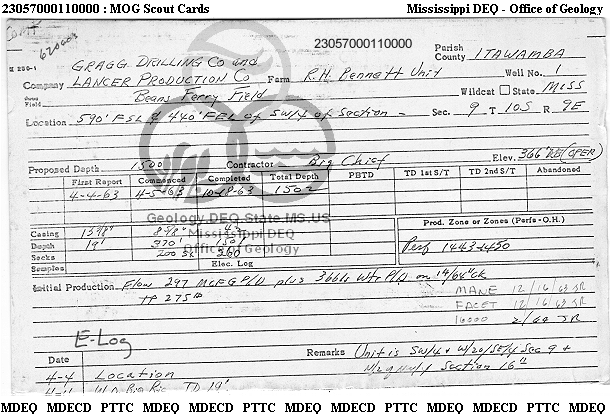 23057000110000 : MOG Scout Cards Mississippi DEQ - Office of Geology
620003
23057000110000
Parish
County ITAWAMBA
M 250-1
GRAGG DRILLING CO and
Company LANCER PRODUCTION CO Farm R.H. Bennett Unit Well No. 1
Field Beans Ferry Field Wildcat State MISS
Location 590' FSL & 440' FEL of SW/4 of Section - Sec. 9 T 10S R 9E
Elev. 366' (OPER)
Proposed Depth 1500 Contractor Big Chief
First Report Commenced Completed Total Depth PBTD TD 1st S/T TD 2nd S/T Abandoned
4-4-63 4-5-63 10-18-63 1502
Geology.DEQ.State.MS.US
Mississippi DEQ
Office of Geology
Casing 13 3/8" 8 5/8"
Depth 19'
Sacks 200 SX
Samples Elec. Log
Prod. Zone or Zones (Perfs-O.H.)
Perf 1443-1450
Initial Production Flow 297 MCFGP/D plus 366 Wtr P/D on 14/64" CK
TP 275#
MANE 12/16/63 JR
FACET 12/16/63 JR
16000 2/64 JR
E-Log
Remarks Unit is SW/4 & W/20/SE/4 Sec 9 +
Section 16"
Date
4-4 Location
TD 19'
MDEQ MDECD PTTC MDEQ MDECD PTTC MDEQ MDECD PTTC MDEQ MDECD PTTC MDEQ